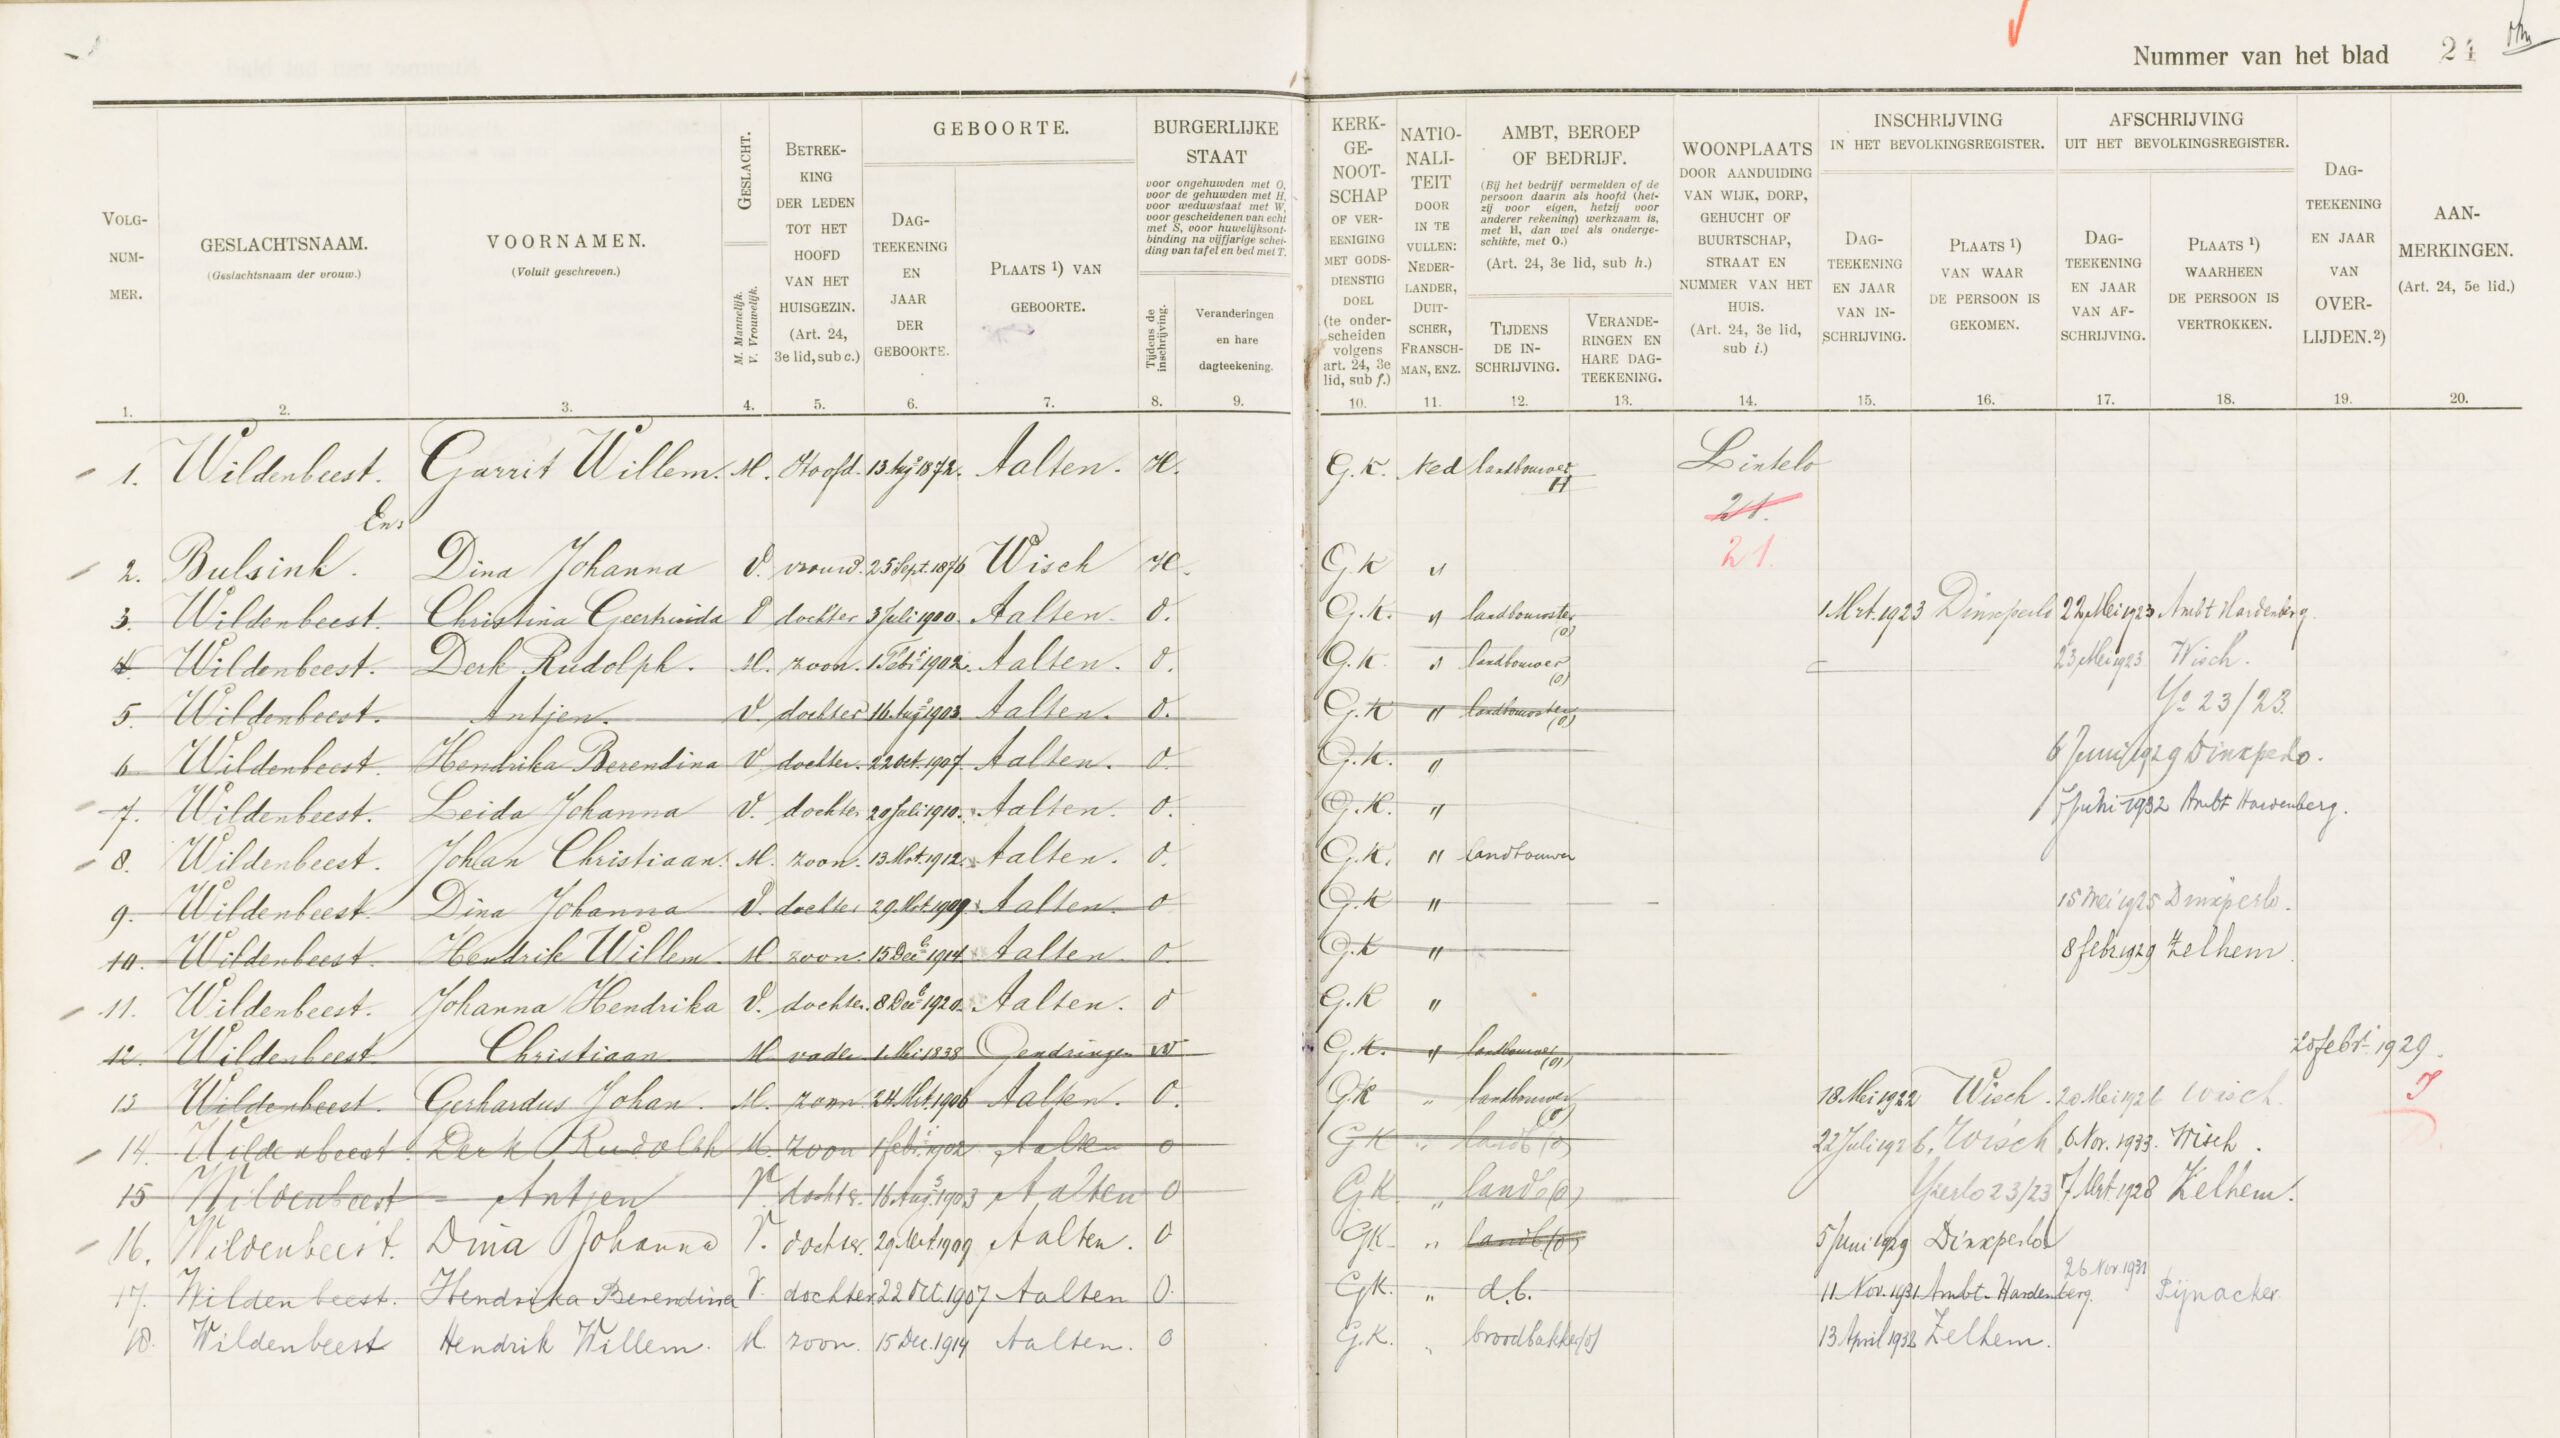 Nummer van het blad 24
VOLG-NUM-MER.
GESLACHTSNAAM.
(Geslachtsnaam der vrouw.)
VOORNAMEN.
(Voluit geschreven.)
GESLACHT.
M. Mannelijk.
V. Vrouwelijk.
BETREK-KING DER LEDEN TOT HET HOOFD VAN HET HUISGEZIN.
(Art. 24, 3e lid, sub c.)
GEBOORTE.
DAG-TEEKENING EN JAAR DER GEBOORTE.
PLAATS 1) VAN GEBOORTE.
BURGERLIJKE STAAT
voor ongehuwden met O, voor de gehuwden met H, voor weduwstaat met W, voor gescheidenen van echt met S, voor huwelijksont-binding na vijfjarige schei-ding van tafel en bed met T.
Tijdens de inschrijving.
Veranderingen en hare dagteekening.
KERK-GE-NOOT-SCHAP OF VER-EENIGING MET GODS-DIENSTIG DOEL
(te onder-scheiden volgens art. 24, 3e lid, sub f.)
NATIO-NALI-TEIT DOOR IN TE VULLEN: NEDER-LANDER, DUIT-SCHER, FRANSCH-MAN, ENZ.
AMBT, BEROEP OF BEDRIJF.
(Bij het bedrijf vermelden of de persoon daarin als hoofd (het-zij voor eigen, hetzij voor anderer rekening) werkzaam is, met H, dan wel als onderge-schikte, met O.)
(Art. 24, 3e lid, sub h.)
TIJDENS DE IN-SCHRIJVING.
VERANDE-RINGEN EN HARE DAG-TEEKENING.
WOONPLAATS DOOR AANDUIDING VAN WIJK, DORP, GEHUCHT OF BUURTSCHAP, STRAAT EN NUMMER VAN HET HUIS.
(Art. 24, 3e lid, sub i.)
INSCHRIJVING IN HET BEVOLKINGSREGISTER.
DAG-TEEKENING EN JAAR VAN IN-SCHRIJVING.
PLAATS 1) VAN WAAR DE PERSOON IS GEKOMEN.
AFSCHRIJVING UIT HET BEVOLKINGSREGISTER.
DAG-TEEKENING EN JAAR VAN AF-SCHRIJVING.
PLAATS 1) WAARHEEN DE PERSOON IS VERTROKKEN.
DAG-TEEKENING EN JAAR VAN OVER-LIJDEN.2)
AAN-MERKINGEN.
(Art. 24, 5e lid.)
1. 2. 3. 4. 5. 6. 7. 8. 9. 10. 11. 12. 13. 14. 15. 16. 17. 18. 19. 20.
1. Wildenbeest. Garrit Willem. M. Hoofd. 13 Aug 1872. Aalten. H. G.K. Ned landbouwer H Lintelo
En:
21.
2. Bulsink. Dina Johanna V. vrouw. 25 Sept. 1876 Wisch H. G.K " 21
3. Wildenbeest. Christina Geertruida V dochter 3 Juli 1900. Aalten. O. G.K. " landbouwster (O) 1 Mrt. 1923 Dinxperlo 22 Mei 1923 Ambt Hardenberg
4. Wildenbeest. Derk Rudolph. M. zoon. 1 Febr 1902. Aalten. O. G.K. " landbouwer (O) 23 Mei 1923 Wisch.
5. Wildenbeest. Antjen. V. dochter 16 Aug 1903 Aalten. O. G.K " landbouwster (O) Yo 23/23
6 Wildenbeest. Hendrika Berendina V dochter. 22 Oct. 1907. Aalten. O. G.K. " 6 Juni 1929 Dinxperlo.
7. Wildenbeest. Leida Johanna V. dochter 20 Juli 1910. Aalten. O. G.K. " Juni 1932 Ambt Hardenberg.
8. Wildenbeest. Johan Christiaan. M. zoon. 13 Mrt. 1912. Aalten. O. G.K. " landbouwer
9. Wildenbeest. Dina Johanna V. dochter 29 Mrt 1909. Aalten. O G.K " 15 Mei 1925 Dinxperlo.
10. Wildenbeest. Hendrik Willem. M. zoon. 15 Dec 1914 Aalten O. G.K " 8 febr 1929 Zelhem.
11. Wildenbeest. Johanna Hendrika V. dochter. 8 Dec 1920. Aalten. O G.K "
12. Wildenbeest Christiaan M. vader 1 Mei 1838 Gendringen W G.K. " landbouwer (O) 20 febr. 1929.
13 Wildenbeest. Gerhardus Johan. M. zoon 24 Mrt. 1906 Aalten. O. G.K " landbouwer (O) 18 Mei 1922 Wisch. 20 Mei 1926 Wisch.
14. Wildenbeest. Derk Rudolph M. zoon 1 febr. 1902 Aalten O G K " landb (O) 22 Juli 1926. Wisch. 6 Nov. 1933. Wisch.
15 Wildenbeest - Antjen V. dochter. 16 Aug 1903 Aalten O G.K " landb (O) Yzerlo 23/23 7 Mrt 1928 Zelhem.
16. Wildenbeest. Dina Johanna V. dochter. 29 Mrt 1909 Aalten. O GK " landb (O) 5 Juni 1929 Dinxperlo
17. Wildenbeest. Hendrika Berendina V. dochter 22 Oct. 1907 Aalten O. GK. " d.b. 11 Nov. 1931 Ambt-Hardenberg. 26 Nov. 1931 Pijnacker.
18. Wildenbeest Hendrik Willem. M. zoon. 15 Dec. 1914 Aalten. O G.K. " broodbakker (O) 13 April 1932 Zelhem.